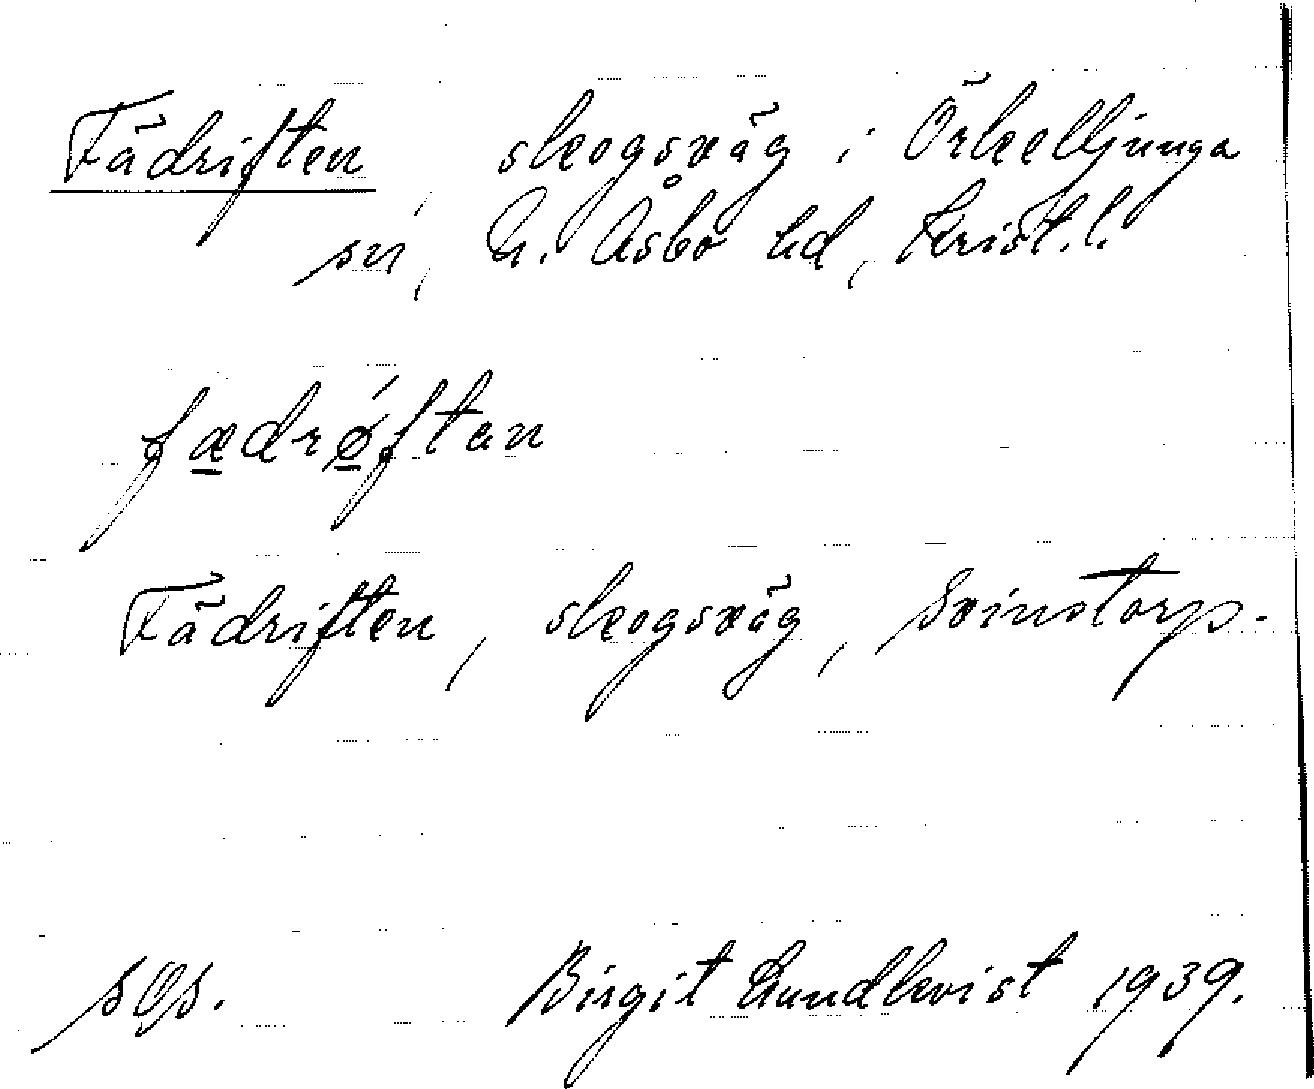 Fädriften, skogsväg i Örkelljunga
sn, N. Åsbo hd, Krist.l.
fædrǿftan
Fädriften, skogsväg, Svinstorp.
sgs. Birgit Lundkvist 1939.